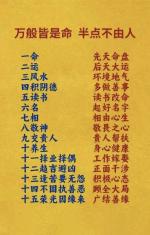 万般皆是命 半点不由人
一命 先天命盘
二运 后天大运
三风水 环境地气
四积阴德 多做善事
五读书 读书改命
六名 起好名字
七相 相由心生
八敬神 敬畏之心
九交贵人 帮扶贵人
十养生 身心健康
十一择业择偶 工作嫁娶
十二趋吉避凶 正面干涉
十三逢苦要无怨 积极心态
十四不固执善恶 顾全大局
十五荣光因缘来 广结善缘